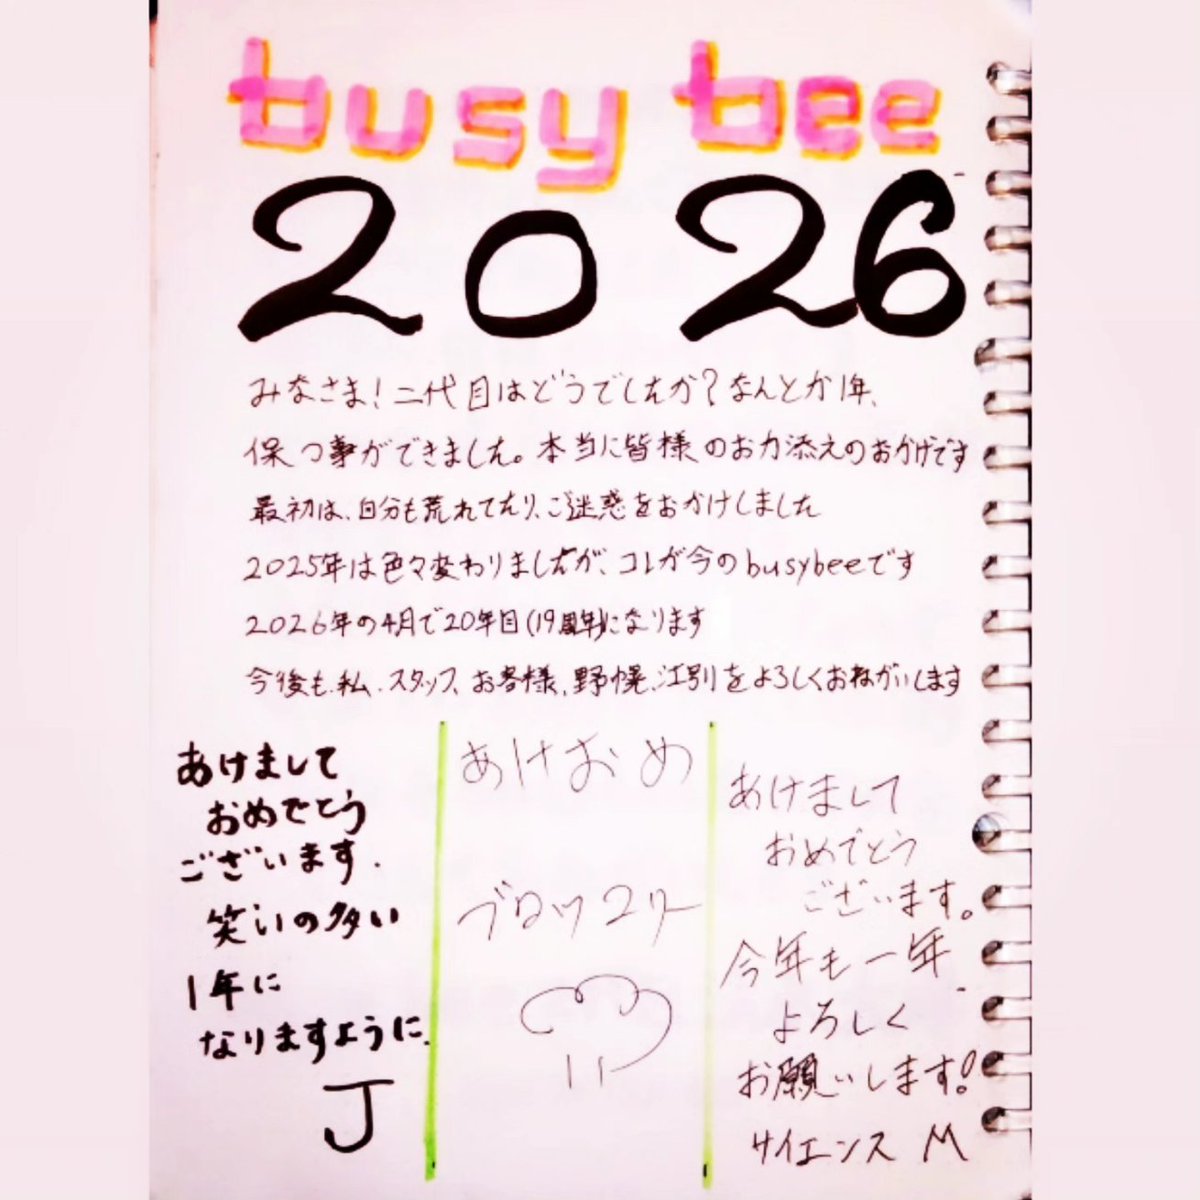 busy bee
2026
みなさま!二代目はどうでしたか?なんとか1年、
保つ事ができました。本当に皆様のお力添えのおかげです
最初は、自分も荒れてたり、ご迷惑をおかけしました
2025年は色々変わりましたが、コレが今のbusybeeです
2026年の4月で20年目(19周年)になります
今後も、私、スタッフ、お客様、野幌、江別をよろしくおねがいします
あけまして
おめでとう
ございます.
笑いの多い
1年に
なりますように.
J
あけおめ
ブロッコリー
あけまして
おめでとう
ございます。
今年も一年
よろしく
お願いします!
サイエンス M